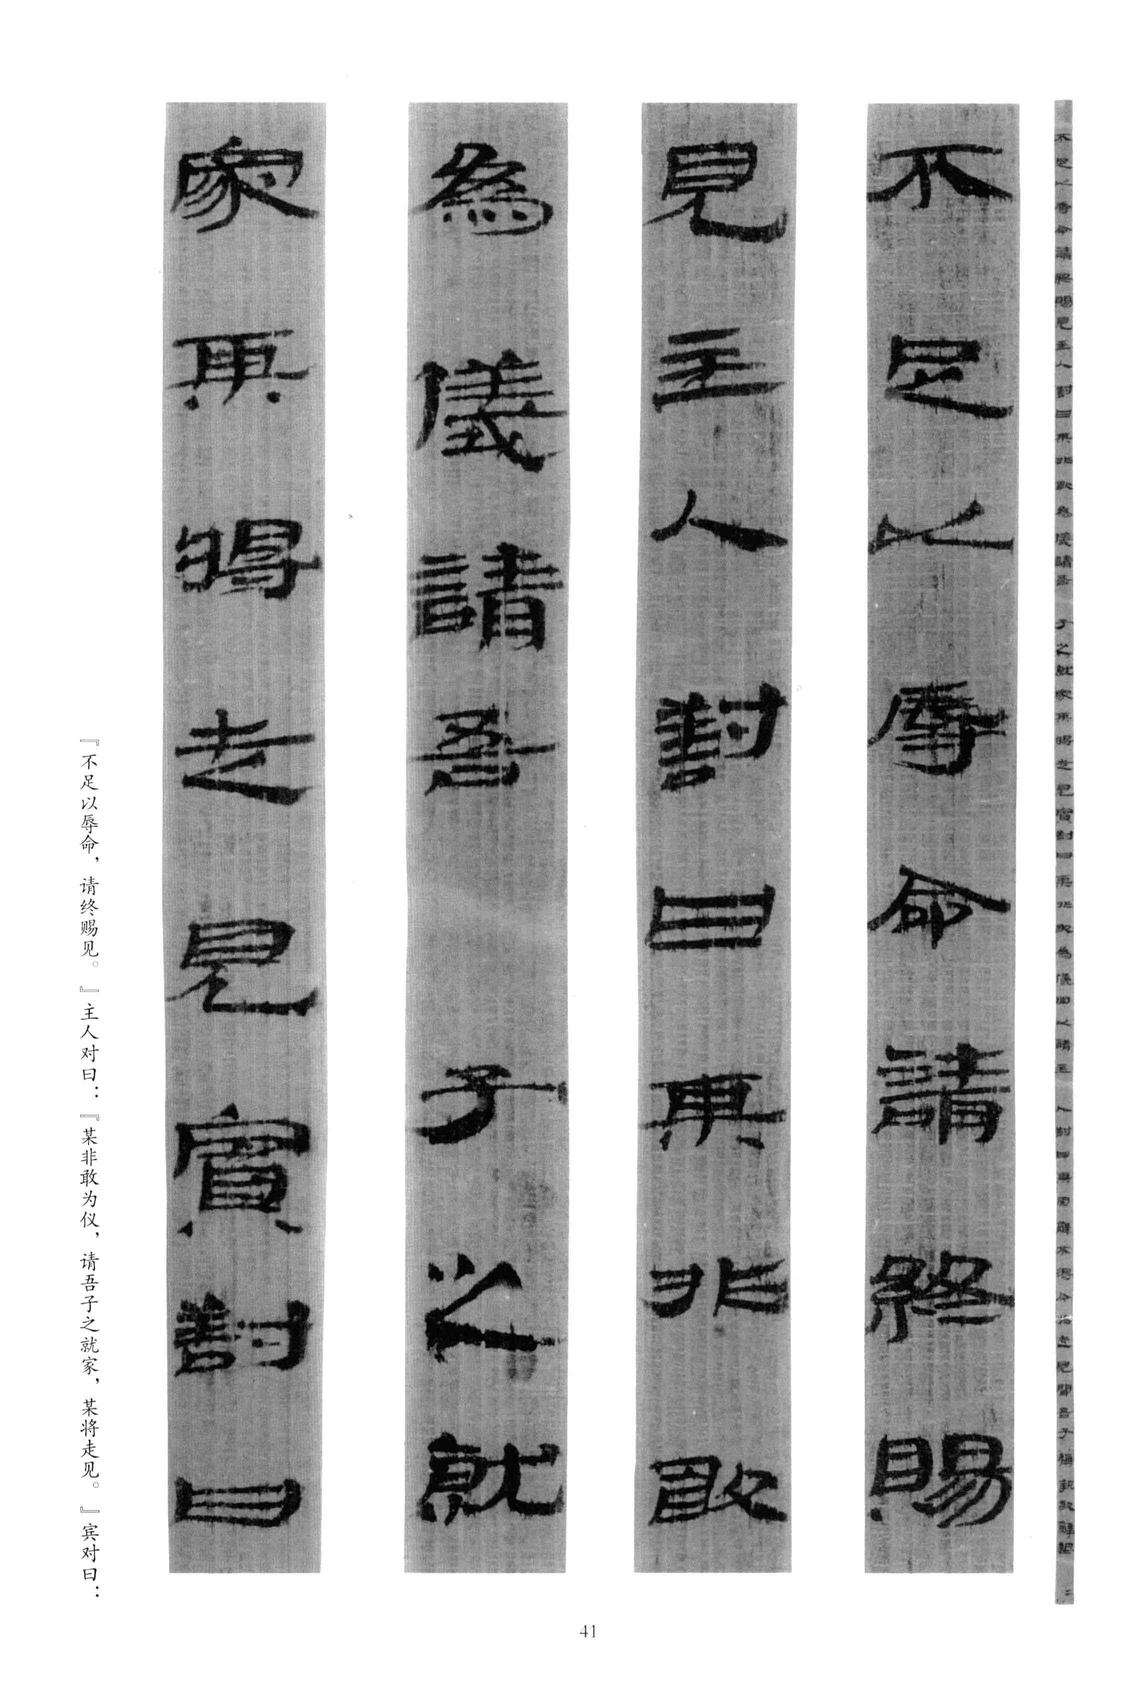 不足以辱命請終賜
見主人對曰某非敢
為儀請吾子之就
家某將走見賓對曰
『不足以辱命，请终赐见。』主人对曰：『某非敢为仪，请吾子之就家，某将走见。』宾对曰：
41